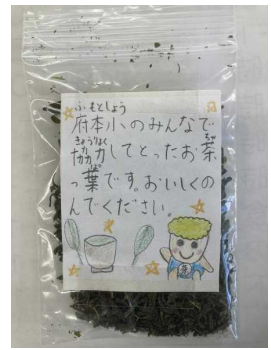 ふもとしょう
府本小のみんなで
きょうりょく ちゃ
協力してとったお茶
ぱ
っ葉です。おいしくの
んでください。